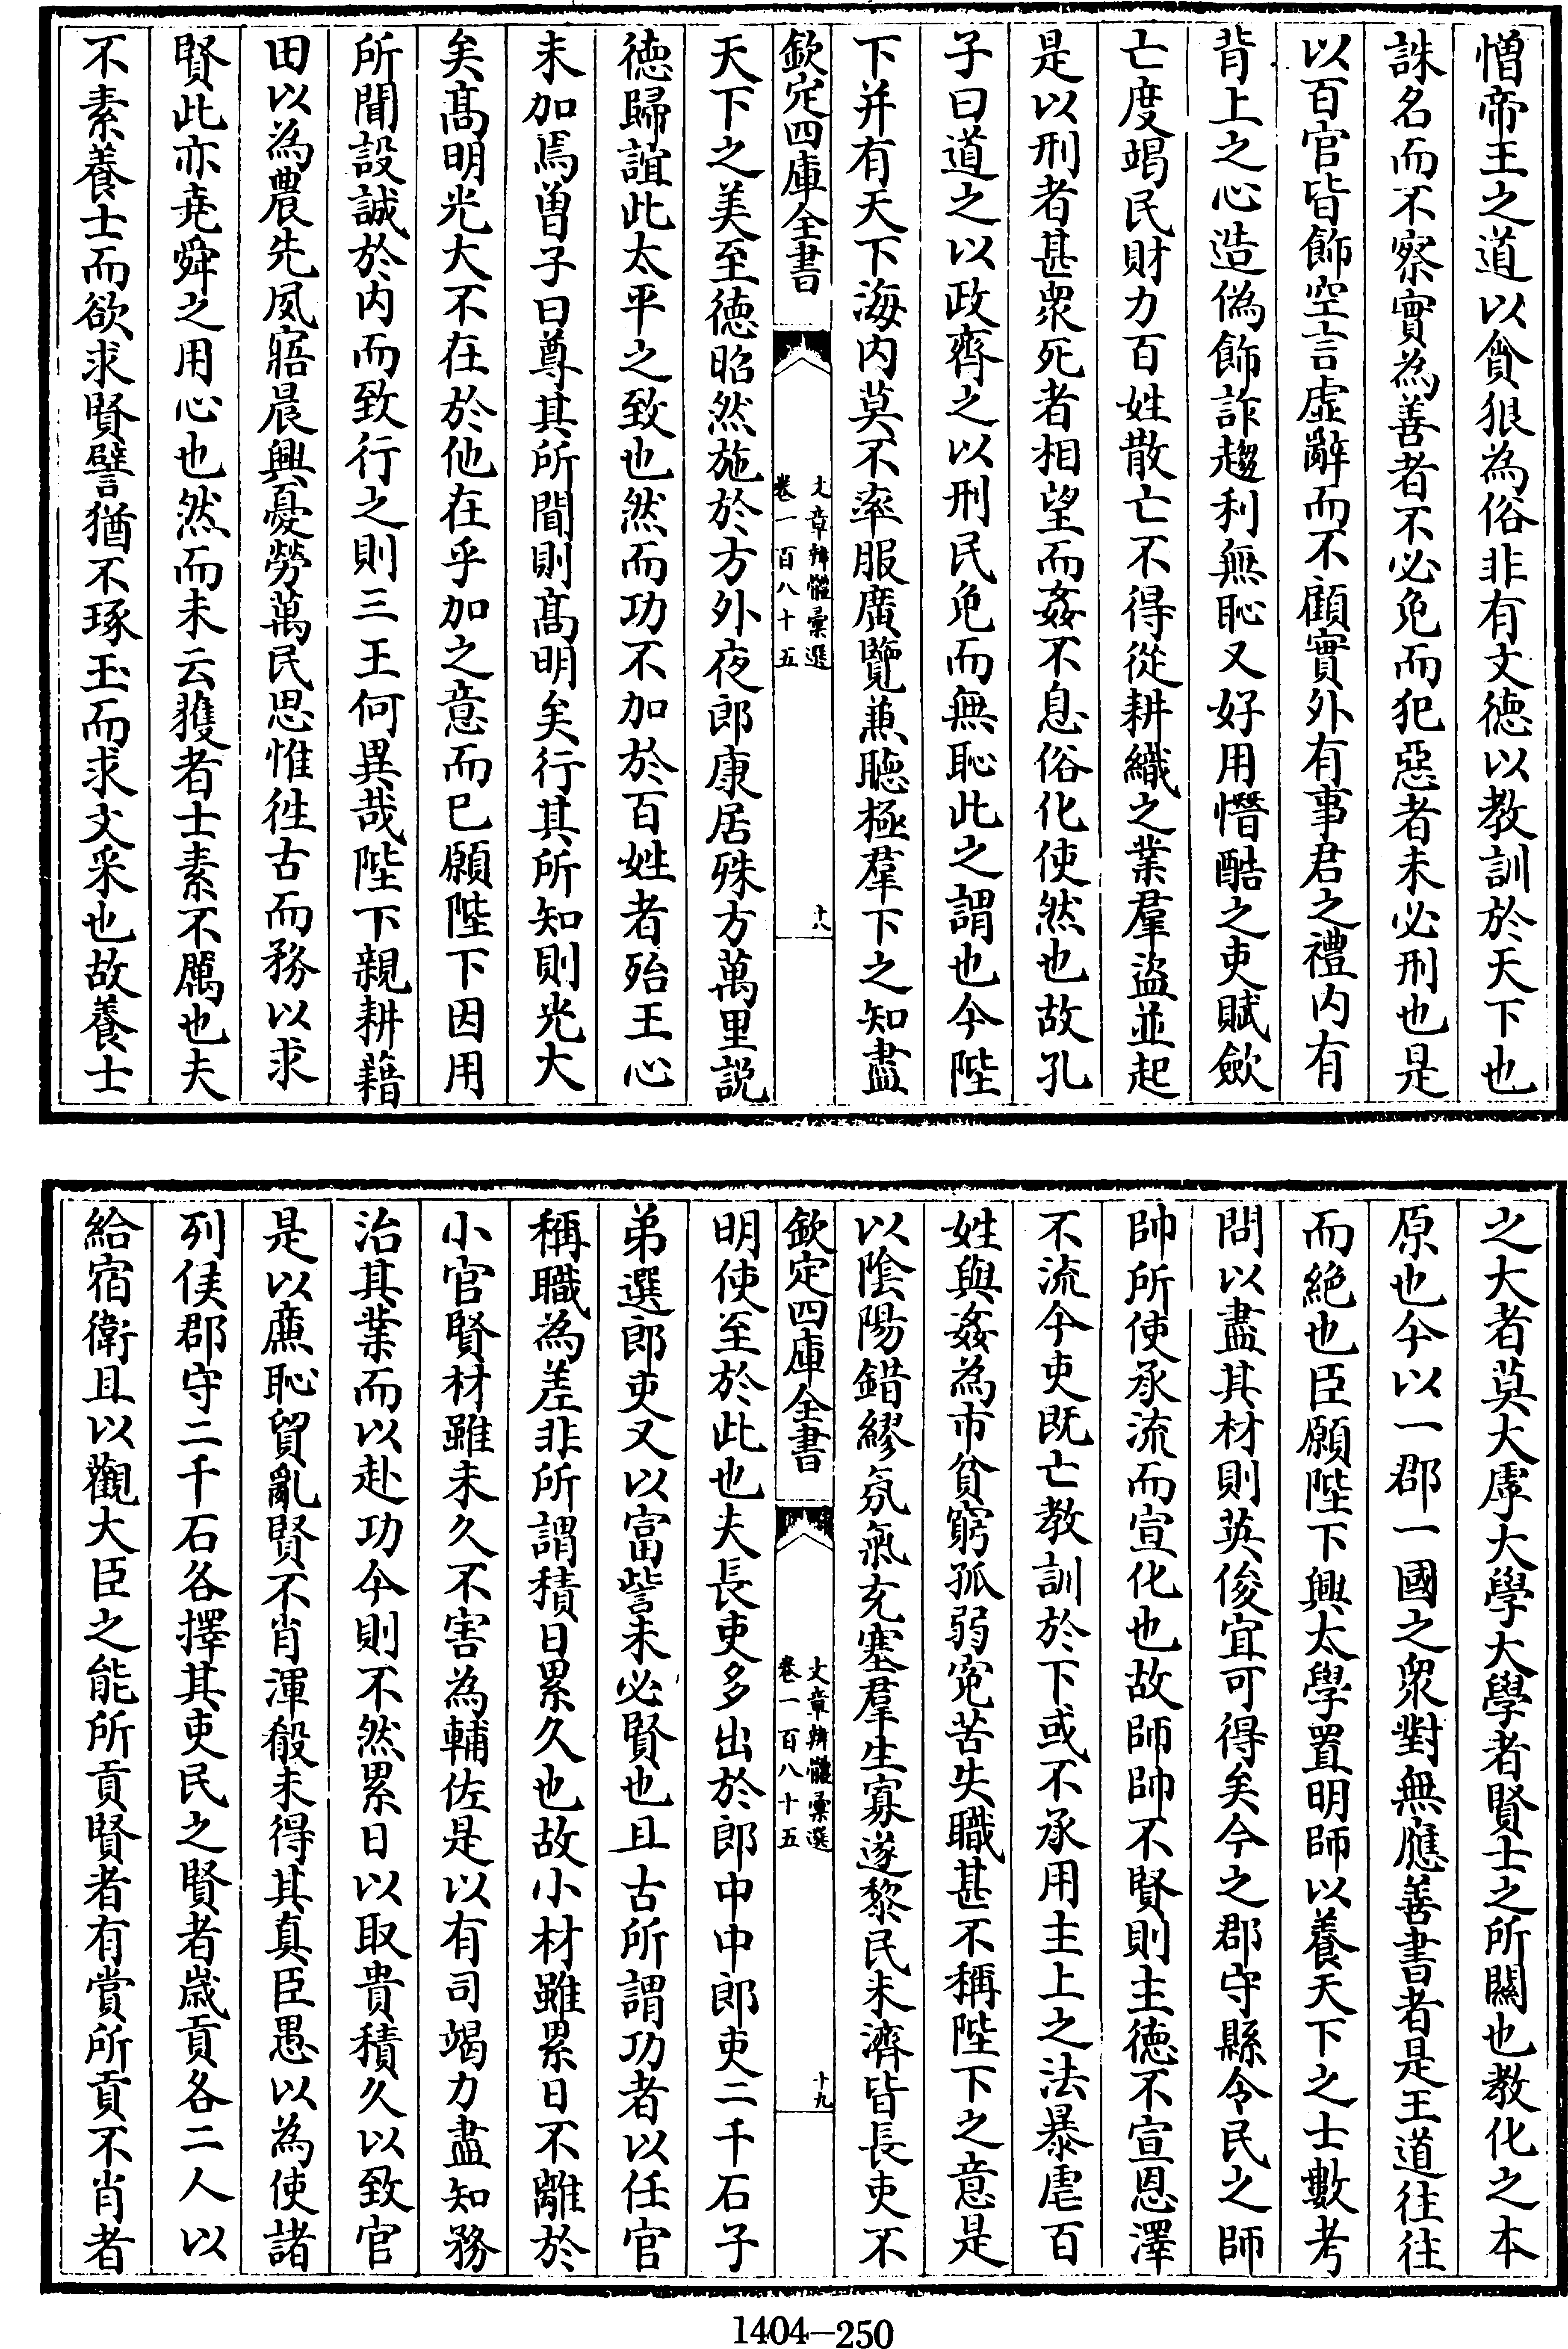 憎帝王之道以貪狠為俗非有文徳以教訓於天下也
誅名而不察實為善者不必免而犯惡者未必刑也是
以百官皆飾空言虛辭而不顧實外有事君之禮内有
背上之心造偽飾詐趨利無恥又好用憯酷之吏賦斂
亡度竭民財力百姓散亡不得從耕織之業羣盜並起
是以刑者甚衆死者相望而姦不息俗化使然也故孔
子曰道之以政齊之以刑民免而無恥此之謂也今陛
下并有天下海内莫不率服廣覽兼聽極羣下之知盡
欽定四庫全書
文章辨體彚選
卷一百八十五
十八
天下之美至徳昭然施於方外夜郎康居殊方萬里説
徳歸誼此太平之致也然而功不加於百姓者殆王心
未加焉曽子曰尊其所聞則髙明矣行其所知則光大
矣髙明光大不在於他在乎加之意而已願陛下因用
所聞設誠於内而致行之則三王何異哉陛下親耕藉
田以為農先夙寤晨興憂勞萬民思惟徃古而務以求
賢此亦堯舜之用心也然而未云獲者士素不厲也夫
不素養士而欲求賢譬猶不琢玉而求文采也故養士
之大者莫大虖大學大學者賢士之所關也教化之本
原也今以一郡一國之衆對無應善書者是王道往往
而絶也臣願陛下興太學置明師以養天下之士數考
問以盡其材則英俊宜可得矣今之郡守縣令民之師
帥所使承流而宣化也故師帥不賢則主徳不宣恩澤
不流今吏既亡教訓於下或不承用主上之法暴虐百
姓與姦為市貧窮孤弱寃苦失職甚不稱陛下之意是
以陰陽錯繆氛氣充塞羣生寡遂黎民未濟皆長吏不
欽定四庫全書
文章辨體彚選
卷一百八十五
十九
明使至於此也夫長吏多出於郎中中郎吏二千石子
弟選郎吏又以富訾未必賢也且古所謂功者以任官
稱職為差非所謂積日累久也故小材雖累日不離於
小官賢材雖未久不害為輔佐是以有司竭力盡知務
治其業而以赴功今則不然累日以取貴積久以致官
是以㢘恥貿亂賢不肖渾殽未得其真臣愚以為使諸
列侯郡守二千石各擇其吏民之賢者嵗貢各二人以
給宿衛且以觀大臣之能所貢賢者有賞所貢不肖者
1404—250